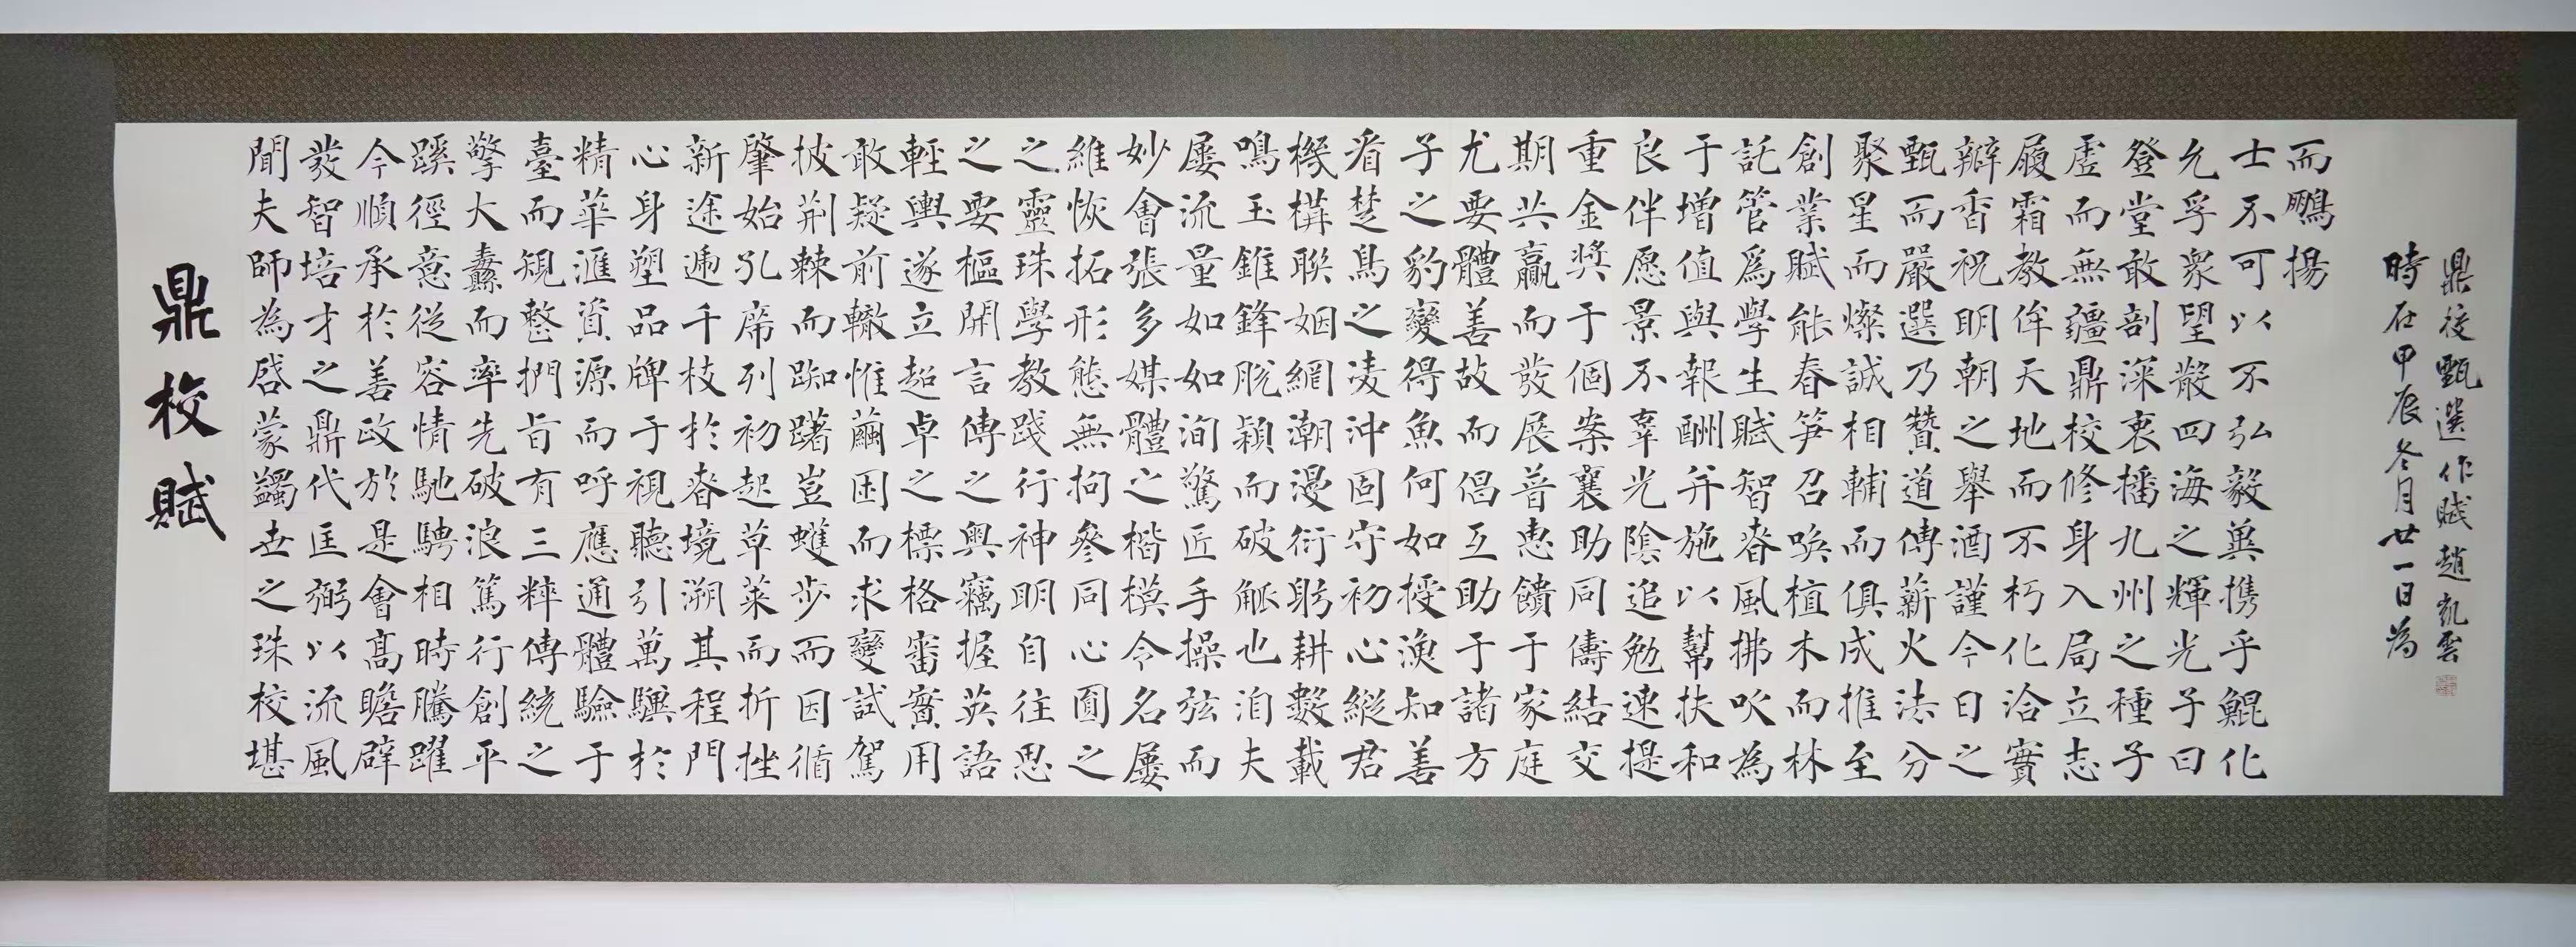 鼎校賦
聞夫師為啓蒙蠲世之珠校堪
發智培才之鼎代匡弼以流風
今順承於善政於是會高瞻辟
蹊徑意從容情馳騁相時騰躍
擎大纛而率先破浪篤行創平
臺而規整捫旨有三粹傳統之
精華滙資源而呼應通體驗于
心身塑品牌于視聽引萬驥於
新途遞千枝於春境溯其程門
肇始孔席列初起草萊而折挫
披荆棘而踟躇豈蠖步而因循
敢疑前轍惟繭困而求變試駕
輕輿遂立超卓之標格審實用
之要樞開言傳之奧竊握英語
之靈珠學教踐行神明自往思
維恢拓形態無拘參同心圓之
妙會張多媒體之楷模今名屢
屢流量如如洵驚匠手操弦而
鳴玉錐鋒脫穎而破觚也洎夫
機構聯姻網潮漫衍躬耕數載
看楚鳥之凌沖固守初心縱君
子之豹變得魚何如授漁知善
尤要體善故而倡互助于諸方
期共贏而發展普惠饋于家庭
重金奬于個案襄助同儔結交
良伴愿景不辜光陰追勉速提
于增值與報酬并施以幫扶和
託管爲學生賦智春風拂吹為
創業賦能春笋召喚植木而林
聚星而燦誠相輔而俱成推至
甄而嚴選乃贊道傳薪火法分
瓣香祝明朝之舉酒謹今日之
履霜教侔天地而不朽化洽實
虛而無疆鼎校修身入局立志
登堂敢剖深衷播九州之種子
允孚衆望散四海之輝光子曰
士不可以不弘毅冀携乎鯤化
而鵬揚
時在甲辰冬月廿一日為
鼎校甄選作賦趙凱雲